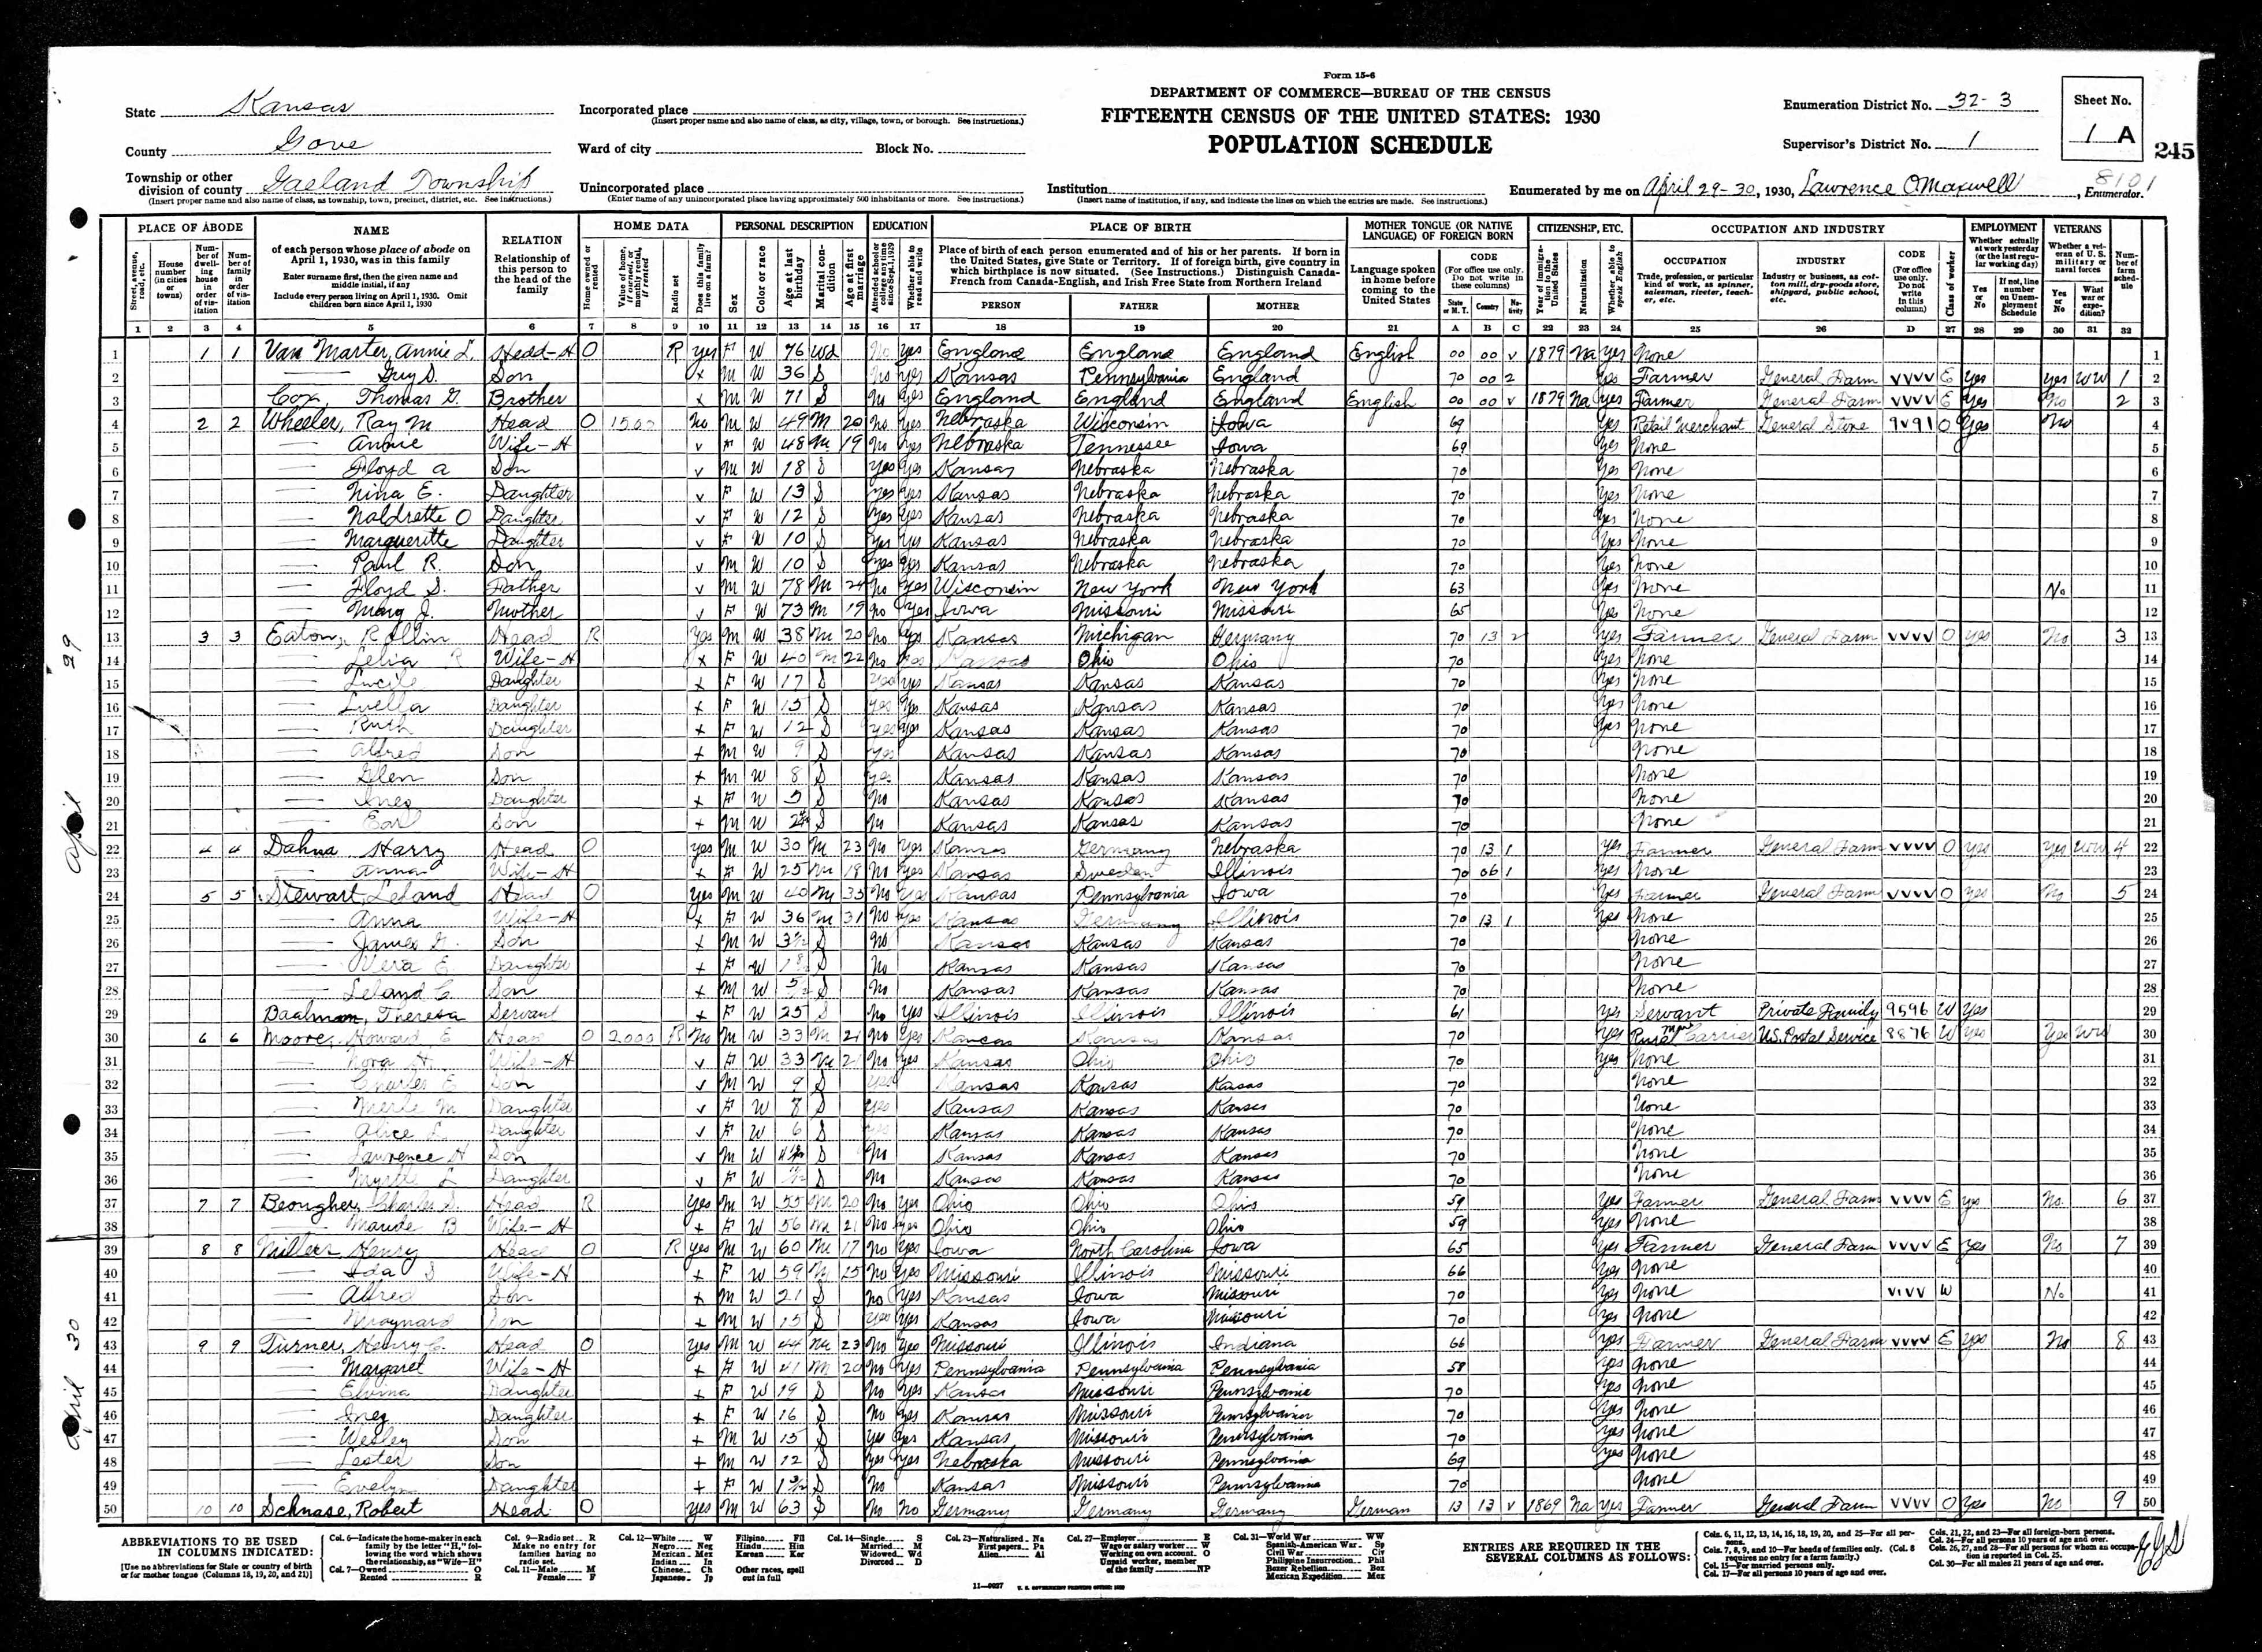 Form 15-6
DEPARTMENT OF COMMERCE—BUREAU OF THE CENSUS
FIFTEENTH CENSUS OF THE UNITED STATES: 1930
POPULATION SCHEDULE
State Kansas
County Gove
Township or other division of county Gaeland Township
(Insert proper name and also name of class, as township, town, precinct, district, etc. See instructions.)
Incorporated place
(Insert proper name and also name of class, as city, village, town, or borough. See instructions.)
Ward of city Block No.
Unincorporated place
(Enter name of any unincorporated place having approximately 500 inhabitants or more. See instructions.)
Institution
(Insert name of institution, if any, and indicate the lines on which the entries are made. See instructions.)
Enumeration District No. 32-3
Supervisor's District No. 1
Sheet No. 1 A
245
8101
Enumerated by me on April 29-30, 1930, Lawrence O Maxwell, Enumerator.
PLACE OF ABODE NAME RELATION HOME DATA PERSONAL DESCRIPTION EDUCATION PLACE OF BIRTH MOTHER TONGUE (OR NATIVE LANGUAGE) OF FOREIGN BORN CITIZENSHIP, ETC. OCCUPATION AND INDUSTRY EMPLOYMENT VETERANS
1 2 3 4 5 6 7 8 9 10 11 12 13 14 15 16 17 18 19 20 21 A B C 22 23 24 25 26 D 27 28 29 30 31 32
1 1 1 Van Marter, Annie L. Head-H O R yes F W 76 Wd No yes England England England English 00 00 v 1879 Na yes None 1
2 Guy D. Son x M W 36 S No yes Kansas Pennsylvania England 70 00 2 yes Farmer General Farm VVVV E yes yes WW 1 2
3 Cox, Thomas G. Brother x M W 71 S No yes England England England English 00 00 v 1879 Na yes Farmer General Farm VVVV E yes No 2 3
4 2 2 Wheeler, Ray M Head O 1500 No M W 49 M 20 No yes Nebraska Wisconsin Iowa 69 yes Retail Merchant General Store 9V91 O yes No 4
5 Annie Wife-H v F W 48 M 19 No yes Nebraska Tennessee Iowa 69 yes None 5
6 Floyd A Son v M W 18 S yes yes Kansas Nebraska Nebraska 70 yes None 6
7 Nina E. Daughter v F W 13 S yes yes Kansas Nebraska Nebraska 70 yes None 7
8 Naldrette O Daughter v F W 12 S yes yes Kansas Nebraska Nebraska 70 yes None 8
9 Margueritte Daughter v F W 10 S yes yes Kansas Nebraska Nebraska 70 yes None 9
10 Paul R. Son v M W 10 S yes yes Kansas Nebraska Nebraska 70 yes None 10
11 Floyd S. Father v M W 78 M 24 No yes Wisconsin New York New York 63 yes None No 11
12 Mary J. Mother v F W 73 M 19 No yes Iowa Missouri Missouri 65 yes None 12
13 3 3 Eaton, Rollin Head R yes M W 38 M 20 No yes Kansas Michigan Germany 70 13 2 yes Farmer General Farm VVVV O yes No 3 13
14 Lelia R Wife-H x F W 40 M 22 No yes Kansas Ohio Ohio 70 yes None 14
15 Lucile Daughter x F W 17 S yes yes Kansas Kansas Kansas 70 yes None 15
16 Luella Daughter x F W 15 S yes yes Kansas Kansas Kansas 70 yes None 16
17 Ruth Daughter x F W 12 S yes yes Kansas Kansas Kansas 70 yes None 17
18 Alfred Son x M W 9 S yes Kansas Kansas Kansas 70 None 18
19 Glen Son x M W 8 S yes Kansas Kansas Kansas 70 None 19
20 Ines Daughter x F W 5 S No Kansas Kansas Kansas 70 None 20
21 Earl Son x M W S No Kansas Kansas Kansas 70 None 21
22 4 4 Dahna Harry Head O yes M W 30 M 23 No yes Kansas Germany Nebraska 70 13 1 yes Farmer General Farm VVVV O yes yes WW 4 22
23 Anna Wife-H x F W 25 M 18 No yes Kansas Sweden Illinois 70 06 1 yes None 23
24 5 5 Stewart, Leland Head O yes M W 40 M 35 No yes Kansas Pennsylvania Iowa 70 yes Farmer General Farm VVVV O yes No 5 24
25 Anna Wife-H x F W 36 M 31 No yes Kansas Germany Illinois 70 13 1 yes None 25
26 James G. Son x M W S No Kansas Kansas Kansas 70 None 26
27 Vera E. Daughter x F W S No Kansas Kansas Kansas 70 None 27
28 Leland C. Son x M W S No Kansas Kansas Kansas 70 None 28
29 Baalman, Theresa Servant x F W 25 S No yes Illinois Illinois Illinois 61 yes Servant Private Family 9596 W yes 29
30 6 6 Moore, Howard E Head O 2000 R No M W 33 M 21 No yes Kansas Kansas Kansas 70 yes Rural Mail Carrier U.S. Postal Service 8876 W yes yes WW 30
31 Nora H. Wife-H v F W 33 M 21 No yes Kansas Ohio Ohio 70 yes None 31
32 Charles E Son v M W 9 S yes Kansas Kansas Kansas 70 None 32
33 Merle M Daughter v F W 8 S yes Kansas Kansas Kansas 70 None 33
34 Alice L. Daughter v F W 6 S yes Kansas Kansas Kansas 70 None 34
35 Lawrence H Son v M W S No Kansas Kansas Kansas 70 None 35
36 Myrtle L Daughter v F W S No Kansas Kansas Kansas 70 None 36
37 7 7 Beougher, Charles S. Head R yes M W 55 M 20 No yes Ohio Ohio Ohio 59 yes Farmer General Farm VVVV E yes No 6 37
38 Maude B Wife-H x F W 56 M 21 No yes Ohio Ohio Ohio 59 yes None 38
39 8 8 Miller, Henry Head O R yes M W 60 M 17 No yes Iowa North Carolina Iowa 65 yes Farmer General Farm VVVV E yes No 7 39
40 Ida S Wife-H x F W 59 M 15 No yes Missouri Illinois Missouri 66 yes None 40
41 Alfred Son x M W 21 S No yes Kansas Iowa Missouri 70 yes None VIVV W No 41
42 Maynard Son x M W 15 S yes yes Kansas Iowa Missouri 70 yes None 42
43 9 9 Turner, Henry C. Head O yes M W 44 M 23 No yes Missouri Illinois Indiana 66 yes Farmer General Farm VVVV E yes No 8 43
44 Margaret Wife-H x F W 41 M 20 No yes Pennsylvania Pennsylvania Pennsylvania 58 yes None 44
45 Elvina Daughter x F W 19 S No yes Kansas Missouri Pennsylvania 70 yes None 45
46 Inez Daughter x F W 16 S No yes Kansas Missouri Pennsylvania 70 yes None 46
47 Wesley Son x M W 15 S yes yes Kansas Missouri Pennsylvania 70 yes None 47
48 Lester Son x M W 12 S yes yes Nebraska Missouri Pennsylvania 69 yes None 48
49 Evelyn Daughter x F W S No Kansas Missouri Pennsylvania 70 None 49
50 10 10 Schnase, Robert Head O yes M W 63 S No No Germany Germany Germany German 13 13 v 1869 Na yes Farmer General Farm VVVV O yes No 9 50
April 29
April 30
ABBREVIATIONS TO BE USED IN COLUMNS INDICATED:
[Use no abbreviations for State or country of birth or for mother tongue (Columns 18, 19, 20, and 21)]
Col. 6—Indicate the home-maker in each family by the letter "H," following the word which shows the relationship, as "Wife—H"
Col. 7—Owned O Rented R
Col. 9—Radio set R Make no entry for families having no radio set.
Col. 11—Male M Female F
Col. 12—White W Negro Neg Mexican Mex Indian In Chinese Ch Japanese Jp Filipino Fil Hindu Hin Korean Kor Other races, spell out in full
Col. 14—Single S Married M Widowed Wd Divorced D
Col. 23—Naturalized Na First papers Pa Alien Al
Col. 27—Employer E Wage or salary worker W Working on own account O Unpaid worker, member of the family NP
Col. 31—World War WW Spanish-American War Sp Civil War Civ Philippine Insurrection Phil Boxer Rebellion Box Mexican Expedition Mex
ENTRIES ARE REQUIRED IN THE SEVERAL COLUMNS AS FOLLOWS:
Cols. 6, 11, 12, 13, 14, 16, 18, 19, 20, and 25—For all persons.
Cols. 7, 8, 9, and 10—For heads of families only. (Col. 8 requires no entry for a farm family.)
Col. 15—For married persons only.
Col. 17—For all persons 10 years of age and over.
Cols. 21, 22, and 23—For all foreign-born persons.
Col. 24—For all persons 10 years of age and over.
Cols. 26, 27, and 28—For all persons for whom an occupation is reported in Col. 25.
Col. 30—For all males 21 years of age and over.
11—9937 U. S. GOVERNMENT PRINTING OFFICE: 1930